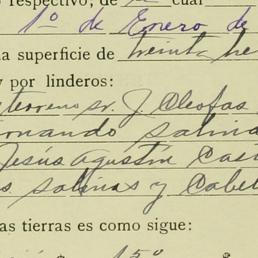 respectivo, de cual
1º de Enero de
la superficie de treinta he
y por linderos:
terreno sr. J Cleofas
rnando Salina
Jesús Agustín Cae
s Salinas y Cabe
as tierras es como sigue:
15º